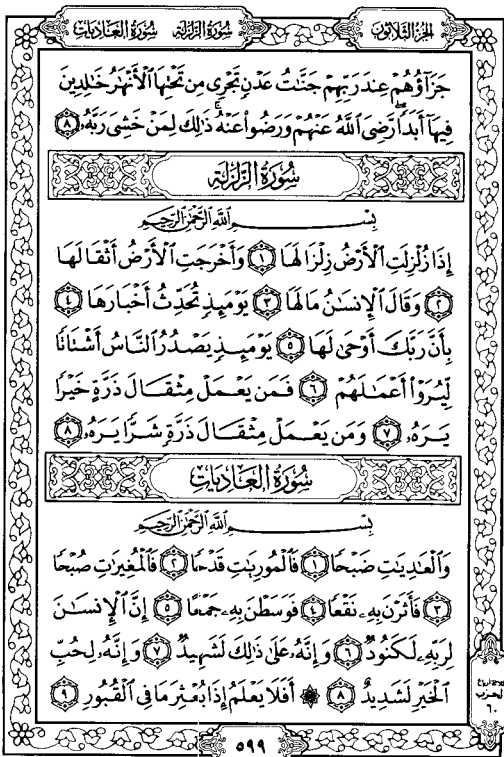 الجزء الثلاثون
سورة الزلزلة سورة العاديات
جَزَآؤُهُمْ عِندَ رَبِّهِمْ جَنَّٰتُ عَدْنٍ تَجْرِى مِن تَحْتِهَا ٱلْأَنْهَٰرُ خَٰلِدِينَ
فِيهَآ أَبَدًا رَّضِىَ ٱللَّهُ عَنْهُمْ وَرَضُوا۟ عَنْهُ ذَٰلِكَ لِمَنْ خَشِىَ رَبَّهُۥ ٨
سُورَةُ الزَّلْزَلَةِ
بِسْمِ ٱللَّهِ ٱلرَّحْمَٰنِ ٱلرَّحِيمِ
إِذَا زُلْزِلَتِ ٱلْأَرْضُ زِلْزَالَهَا ١ وَأَخْرَجَتِ ٱلْأَرْضُ أَثْقَالَهَا
٢ وَقَالَ ٱلْإِنسَٰنُ مَا لَهَا ٣ يَوْمَئِذٍ تُحَدِّثُ أَخْبَارَهَا ٤
بِأَنَّ رَبَّكَ أَوْحَىٰ لَهَا ٥ يَوْمَئِذٍ يَصْدُرُ ٱلنَّاسُ أَشْتَاتًا
لِّيُرَوْا۟ أَعْمَٰلَهُمْ ٦ فَمَن يَعْمَلْ مِثْقَالَ ذَرَّةٍ خَيْرًا
يَرَهُۥ ٧ وَمَن يَعْمَلْ مِثْقَالَ ذَرَّةٍ شَرًّا يَرَهُۥ ٨
سُورَةُ العَادِيَاتِ
بِسْمِ ٱللَّهِ ٱلرَّحْمَٰنِ ٱلرَّحِيمِ
وَٱلْعَٰدِيَٰتِ ضَبْحًا ١ فَٱلْمُورِيَٰتِ قَدْحًا ٢ فَٱلْمُغِيرَٰتِ صُبْحًا
٣ فَأَثَرْنَ بِهِۦ نَقْعًا ٤ فَوَسَطْنَ بِهِۦ جَمْعًا ٥ إِنَّ ٱلْإِنسَٰنَ
لِرَبِّهِۦ لَكَنُودٌ ٦ وَإِنَّهُۥ عَلَىٰ ذَٰلِكَ لَشَهِيدٌ ٧ وَإِنَّهُۥ لِحُبِّ
ٱلْخَيْرِ لَشَدِيدٌ ٨ ۞ أَفَلَا يَعْلَمُ إِذَا بُعْثِرَ مَا فِى ٱلْقُبُورِ ٩
الحزب
٦٠
٥٩٩